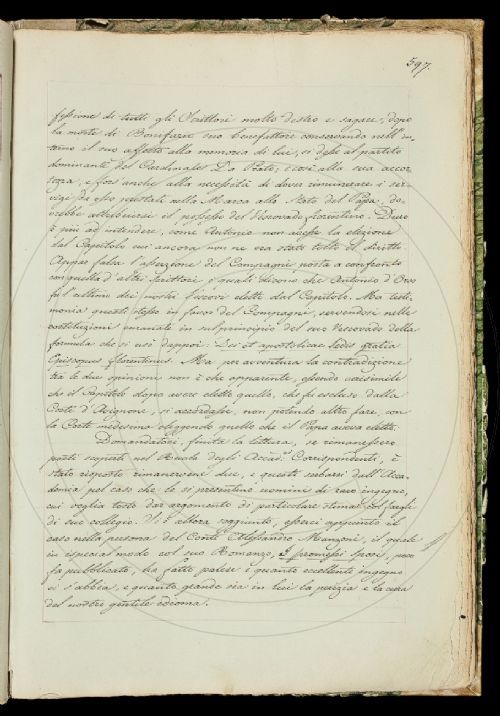 597.
fessione di tutti gli Scrittori molto destro e sagace, dopo
la morte di Bonifazio suo benefattore conservando nell' in-
terno il suo affetto alla memoria di lui, si diede al partito
dominante del Cardinale Da Prato; e così alla sua accor-
tezza, e fors' anche alla necessità di dover rimunerare i ser-
vigi da esso prestati nella Marca allo Stato del Papa, do-
vrebbe attribuirsi il possesso del Vescovado fiorentino. Duro
è più ad intendere, come Antonio non avesse la elezione
dal Capitolo cui ancora non ne era stato tolto il diritto
Appar falsa l'asserzione del Compagni posta a confronto
con quella d'altri Scrittori, i quali dicono che Antonio d'Orso
fu l'ultimo dei nostri Vescovi eletto dal Capitolo. Ma testi-
monia questi stesso in favor del Compagni, servendosi nelle
costituzioni emanate in sul principio del suo Vescovado della
formula che si usò dappoi: Dei et apostolicae Sedis gratia
Episcopus florentinus. Ma per avventura la contradizione
tra le due opinioni non è che apparente, essendo verisimile
che il Capitolo dopo avere eletto quello, che fu escluso dalla
Corte d'Avignone, si accordasse, non potendo altro fare, con
la Corte medesima eleggendo quello che il Papa aveva eletto.
Domandatosi, finita la lettura, se rimanessero
posti scoperti nel Ruolo degli Accad.ci Corrispondenti, è
stato risposto rimanervene due, e questi serbarsi dall' Acca-
demia pel caso che le si presentino uomini di raro ingegno,
cui voglia tosto dar argomento di particolare stima col fregli
di suo collegio. Si è allora soggiunto, esserci appunto il
caso nella persona del Conte Alessandro Manzoni, il quale
in ispecial modo col suo Romanzo, I promessi sposi, poco
fa pubblicato, ha fatto palese e quanto eccellente ingegno
ei s'abbia, e quanto grande sia in lui la perizia e la cura
del nostro gentile idioma.